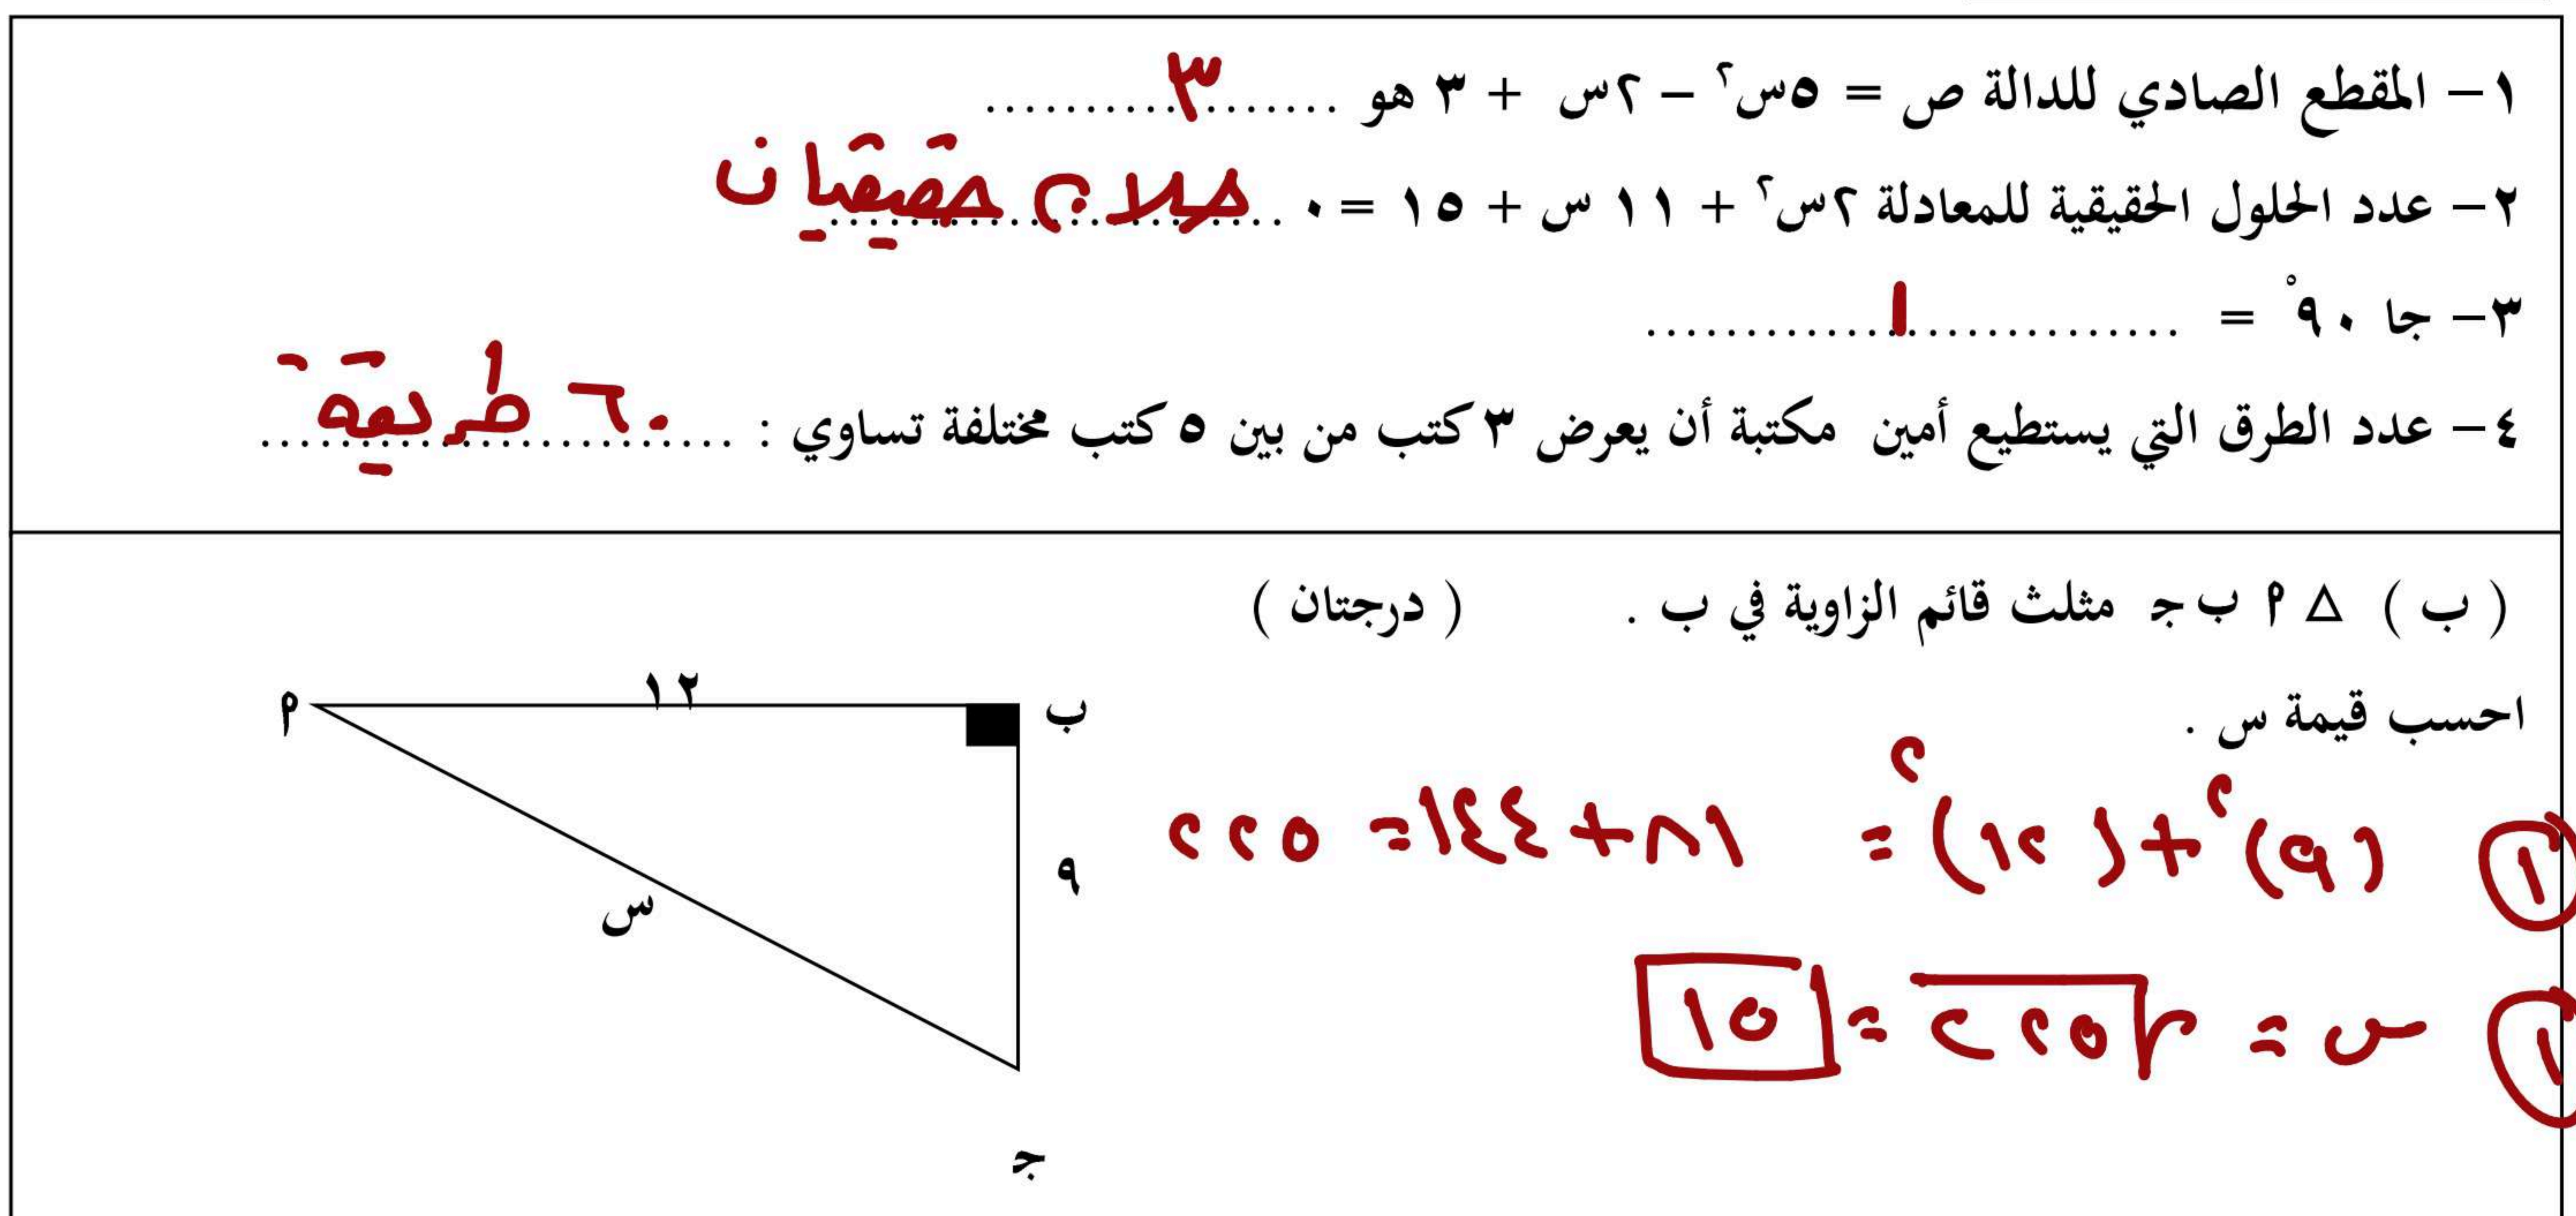 ١- المقطع الصادي للدالة ص = ٥س٢ - ٢س + ٣ هو ..........٣..........
٢- عدد الحلول الحقيقية للمعادلة ٢س٢ + ١١ س + ١٥ = ٠ ..........حلان حقيقيان..........
٣- جا ٩٠° = ..........١..........
٤- عدد الطرق التي يستطيع أمين مكتبة أن يعرض ٣ كتب من بين ٥ كتب مختلفة تساوي : ..........٦٠ طريقة..........
( ب ) △ ٩ ب جـ مثلث قائم الزاوية في ب . ( درجتان )
احسب قيمة س .
١٢
٩
ب
٩
س
جـ
① (٩)٢ + (١٢)٢ = ٨١ + ١٤٤ = ٢٢٥
① س = √٢٢٥ = ١٥